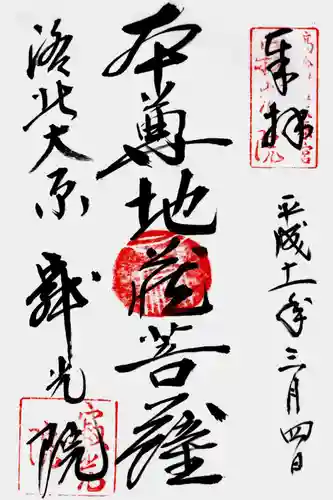 奉拝
平成十一年三月四日
本尊地蔵菩薩
洛北大原
寂光院